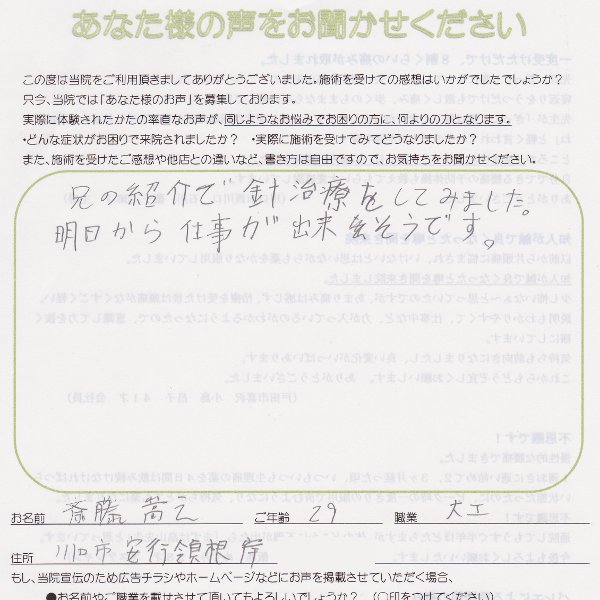 あなた様の声をお聞かせください
この度は当院をご利用頂きましてありがとうございました。施術を受けての感想はいかがでしたでしょうか?
只今、当院では「あなた様のお声」を募集しております。
実際に体験されたかたの率直なお声が、同じようなお悩みでお困りの方に、何よりの力となります。
・どんな症状がお困りで来院されましたか? ・実際に施術を受けてみてどうなりましたか?
また、施術を受けたご感想や他店との違いなど、書き方は自由ですので、お気持ちをお聞かせください。
兄の紹介で針治療をしてみました。
明日から仕事が出来そうです。
お名前 斎藤 ご年齢 29 職業 大工
住所 川口市安行領根岸
もし、当院宣伝のため広告チラシやホームページなどにお声を掲載させていただく場合、
●お名前やご職業を載せさせて頂いてもよろしいでしょうか? (○印をつけてください)